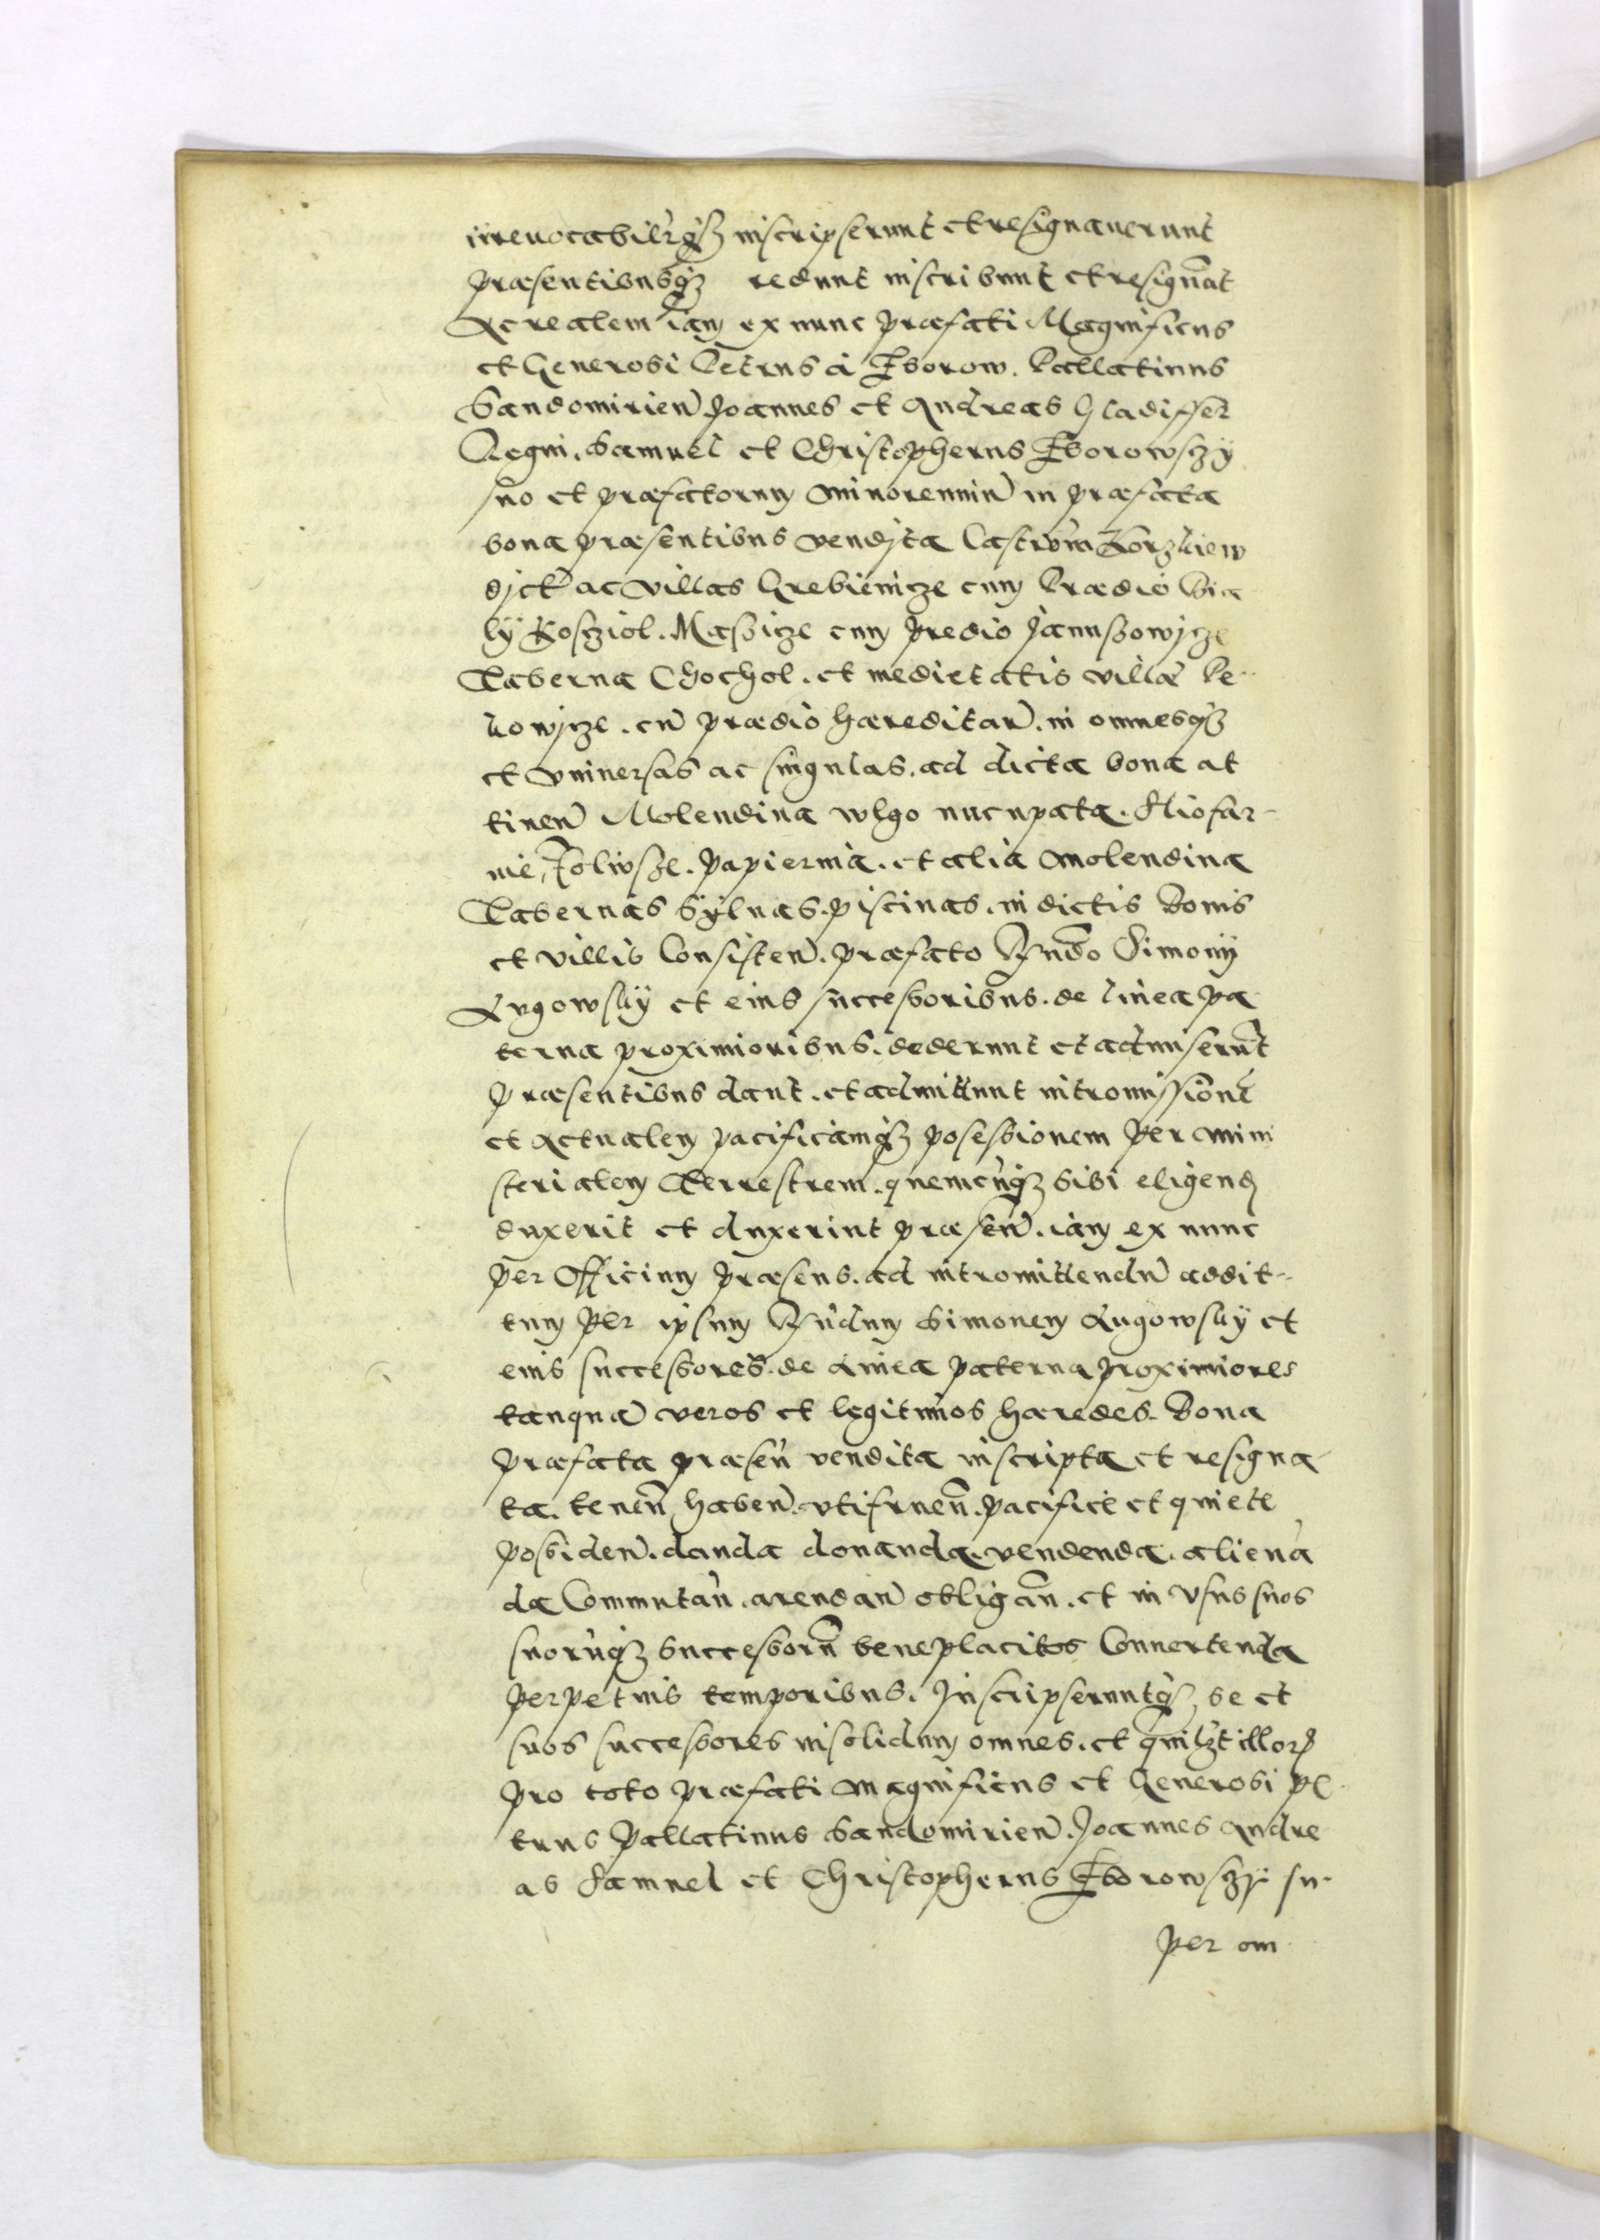 irreuocabilr̃qз inscripserunt et resignauerunt
præsentibusqз redunt inscribunt et resignãt
Ac realem iam ex nunc præfati Magnificus
et Generosi Petrus à Sborow. Pallatinus
Sandomirien̄ Joannes et Andreas Gladiffer
Regni. Samuel et Christopherus Sborowsczÿ
suo et præfatorum minorennin̄ in præfata
bona præsentibus vendita Castrum Korzkiew
dict̃ ac villas Grebienicze cum Prædio Bia
lÿ Koscziol. Maszicze cum predio Januszowicze
Taberna Chochol. et medietatis villæ Be
kowicze. cũ prædio hæreditar̄. in omnesqз
et vniuersas ac singulas. ad dicta bona at
tinen̄ Molendina wlgo nucupata.
papiernia. et alia molendina
Tabernas Sÿluas. piscinas. in dictis Bonis
et villis Consisten̄. præfato Simonÿ
Lugowskÿ et eius successoribus. de linea pa
terna proximioribus. dederunt et admiserũt
præsentibus dant. et admittunt intromissionẽ
et Actualem pacificamqз posessionem per mini
sterialem Terrestrem. quemcũqз sibi eligend
duxerit et duxerint præsen̄. iam ex nunc
per Officium præsens. ad intromittendũ addit
tum per ipsum Simonem Lugowskÿ et
eius successores. de Linea paterna proximiores
tanquã veros et legitimos hæredes. Bona
præfata præsen̄ vendita inscripta et resigna
ta. tenen̄ haben̄. vtifruen̄. pacifice et quiete
possiden̄. danda donanda. vendenda. alienã
da Commutan̄. arendan̄ obligan̄. et in vsus suos
suorũqз Successorũ beneplacitos Conuertenda
perpetuis temporibus. Inscripseruntqз se et
suos successores insolidum omnes. et quilzt illorꝝ
pro toto præfati magnificus et Generosi Pe
trus Pallatinus Sandomirien̄. Joannes Andre
as Samuel et Christopherus Sborowsczÿ su
per om